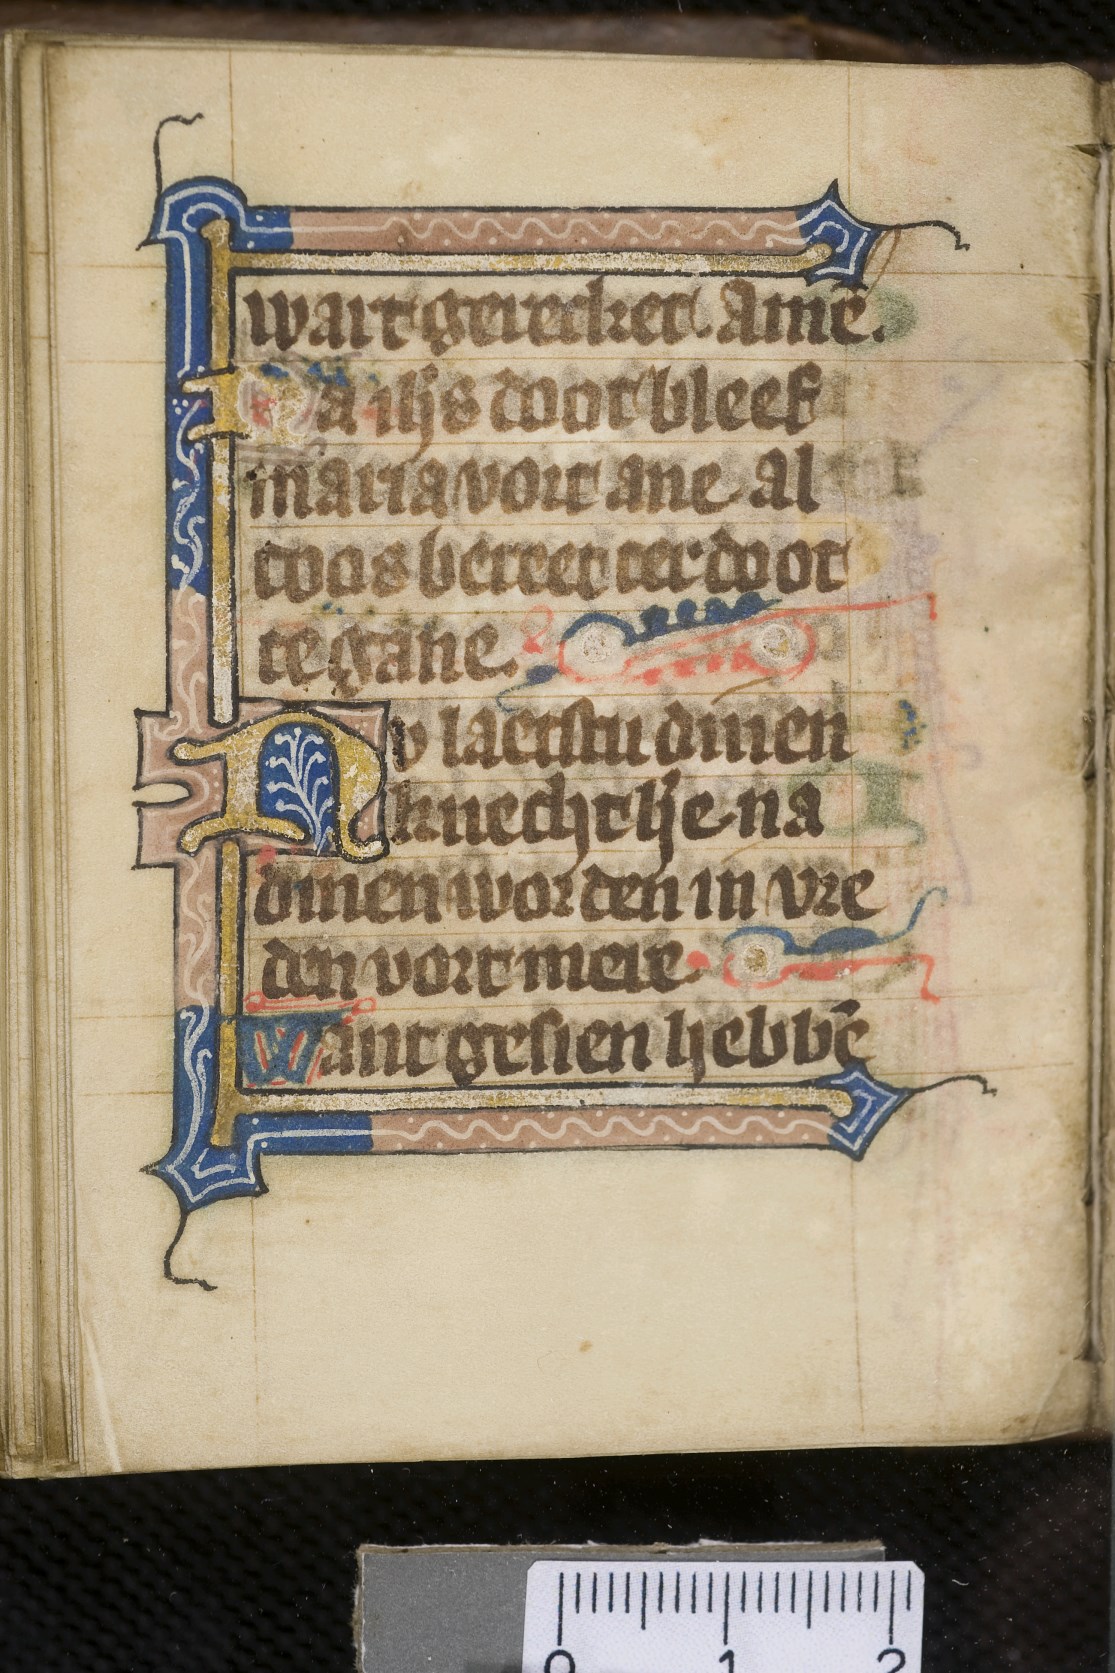 wart gerecket. Amē.
Na ihs doot bleef
maria vort ane al
toos bereet ter doot
te gane.
Nv laetstu dinen
knecht he na
dinen worden in vre
den vort mere
Want gesien hebbē
0 1 2